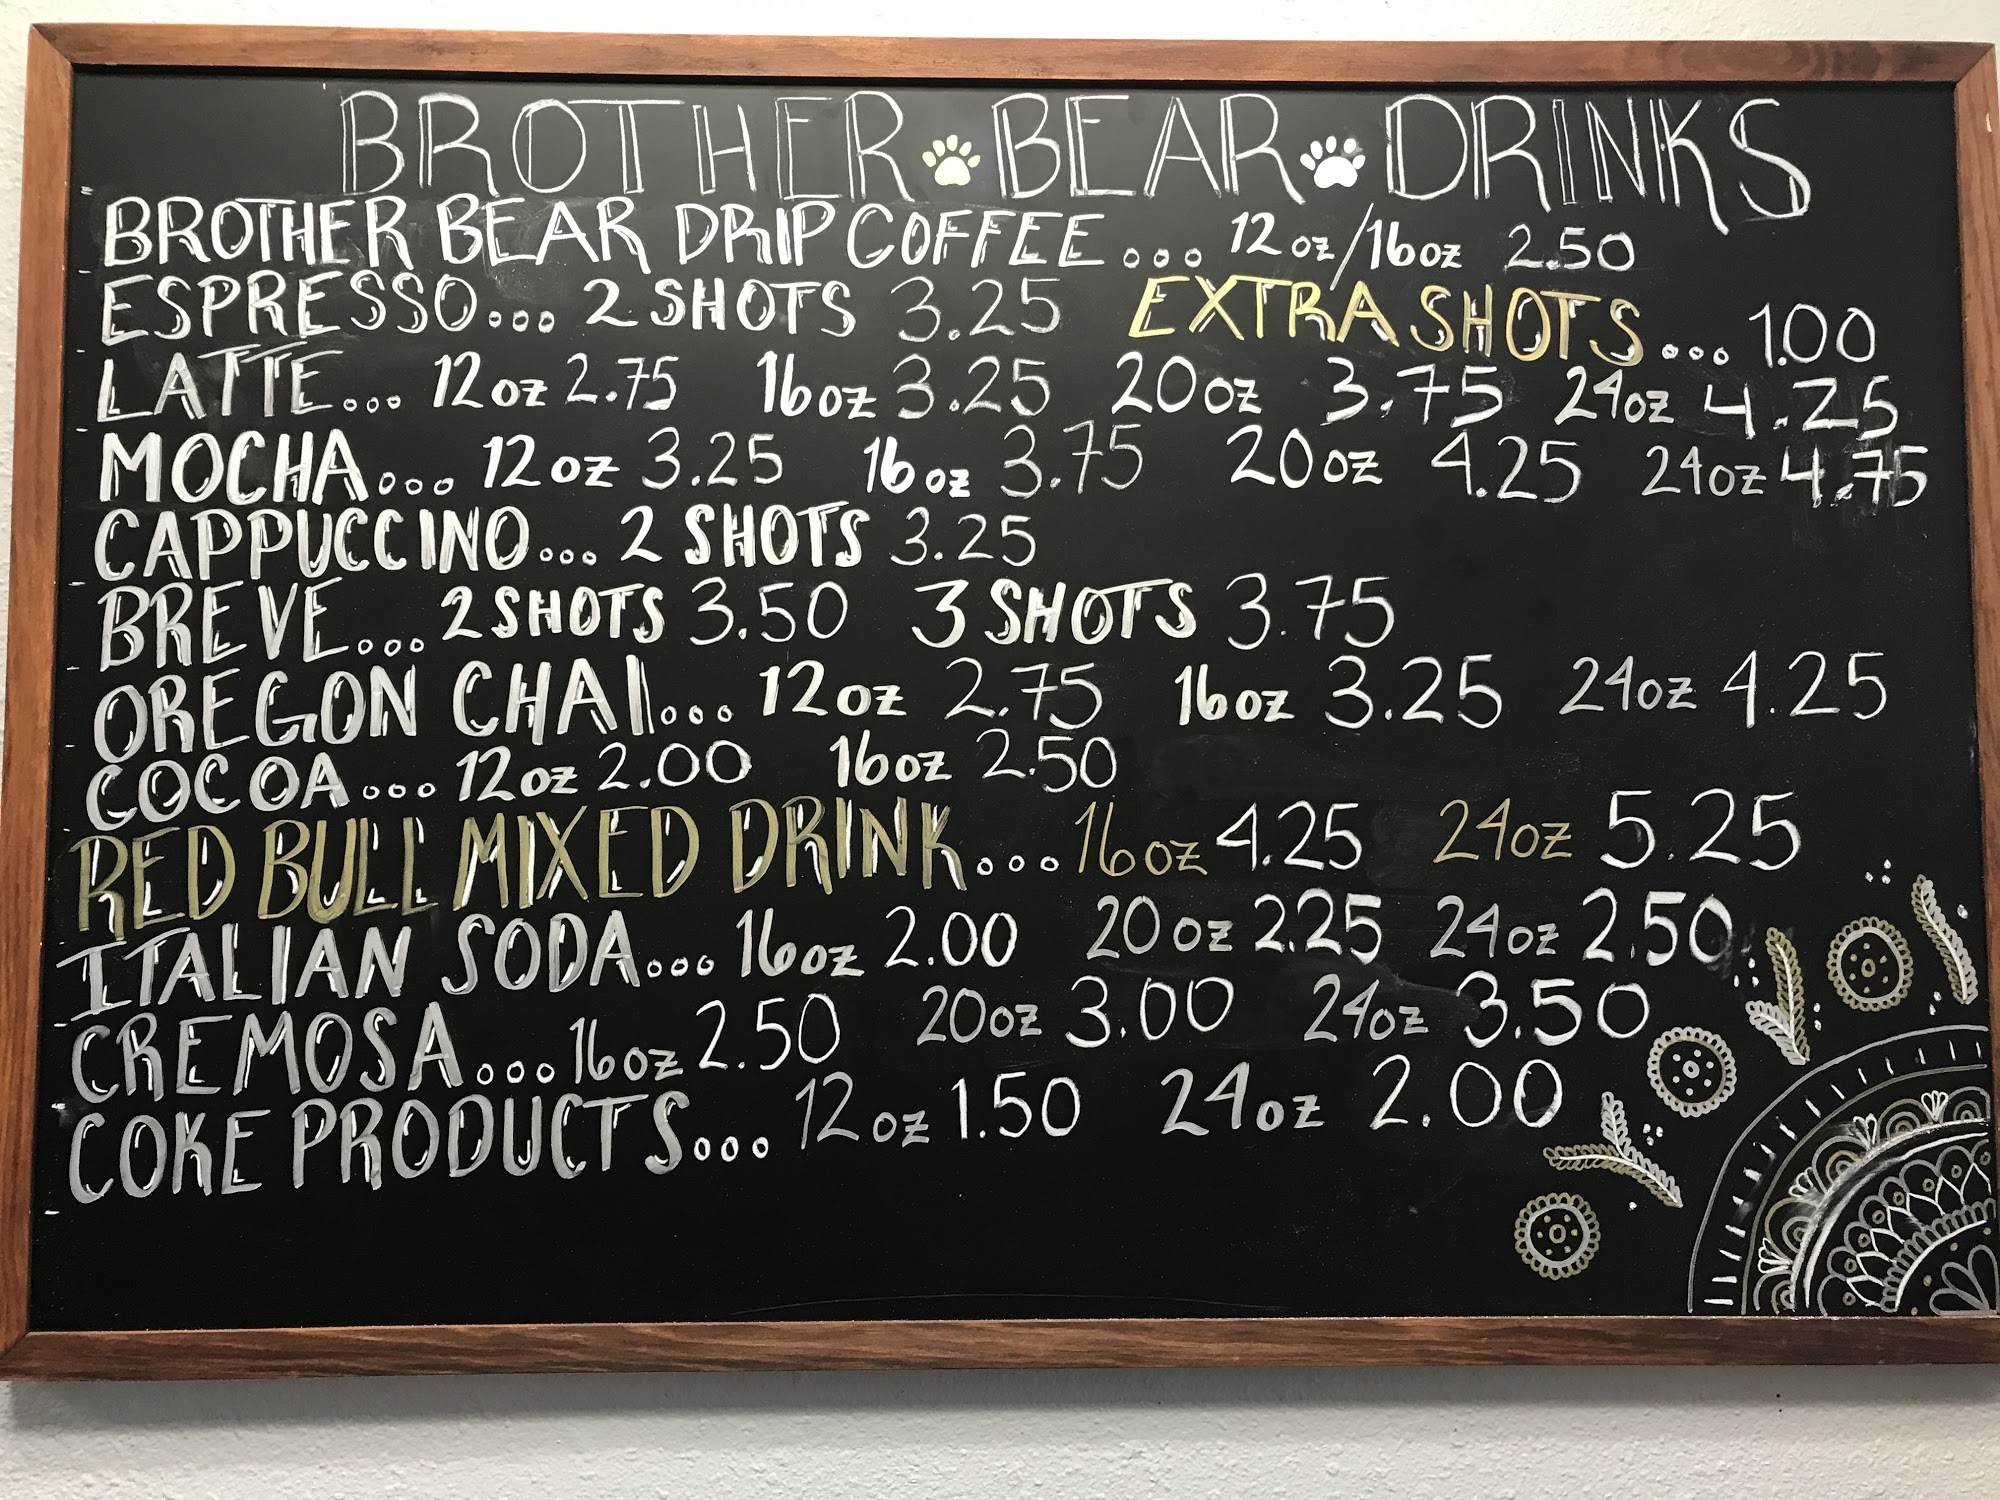 BROTHER BEAR DRINKS
BROTHER BEAR DRIP COFFEE... 12oz/16oz 2.50
ESPRESSO... 2 SHOTS 3.25 EXTRA SHOTS... 1.00
LATTE... 12oz 2.75 16oz 3.25 20oz 3.75 24oz 4.25
MOCHA... 12oz 3.25 16oz 3.75 20oz 4.25 24oz 4.75
CAPPUCCINO... 2 SHOTS 3.25
BREVE... 2 SHOTS 3.50 3 SHOTS 3.75
OREGON CHAI... 12oz 2.75 16oz 3.25 24oz 4.25
COCOA... 12oz 2.00 16oz 2.50
RED BULL MIXED DRINK... 16oz 4.25 24oz 5.25
ITALIAN SODA... 16oz 2.00 20oz 2.25 24oz 2.50
CREMOSA... 16oz 2.50 20oz 3.00 24oz 3.50
COKE PRODUCTS... 12oz 1.50 24oz 2.00